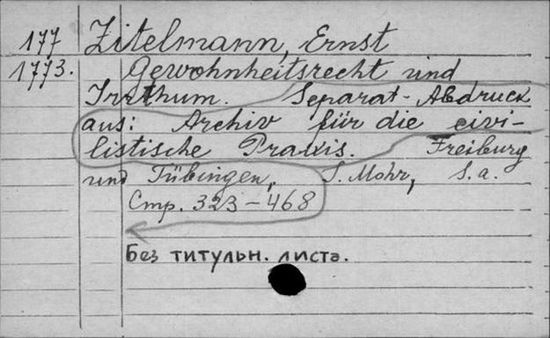 177 Zitelmann, Ernst
1773. Gewohnheitsrecht und
Irrthum. Separat-Abdruck
aus: Archiv für die civi-
listische Praxis. Freiburg
und Tübingen, S. Mohr, s.a.
Стр. 323-468
Без титульн. листа.